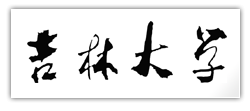 吉林大学